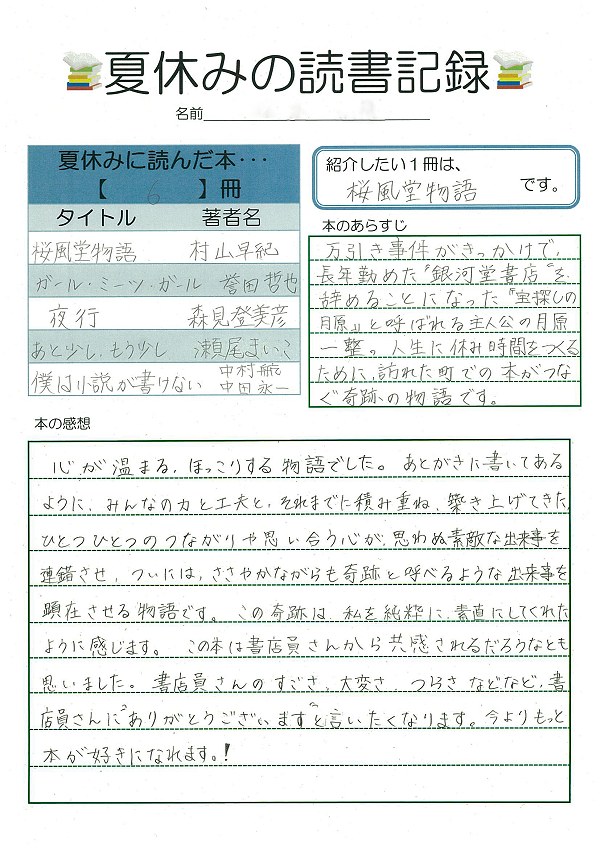 夏休みの読書記録
名前
夏休みに読んだ本・・・
【 6 】冊
タイトル 著者名
桜風堂物語 村山早紀
ガール・ミーツ・ガール 誉田哲也
夜行 森見登美彦
あと少し、もう少し 瀬尾まいこ
僕は小説が書けない 中村航 中田永一
紹介したい1冊は、
桜風堂物語 です。
本のあらすじ
万引き事件がきっかけで、
長年勤めた〝銀河堂書店〟を
辞めることになった〝宝探しの
月原〟と呼ばれる主人公の月原
一整。人生に休み時間をつくる
ために、訪れた町での本がつな
ぐ奇跡の物語です。
本の感想
心が温まる、ほっこりする物語でした。あとがきに書いてある
ように、みんなの力と工夫と、それまでに積み重ね、築き上げてきた、
ひとつひとつのつながりや思い合う心が、思わぬ素敵な出来事を
連鎖させ、ついには、ささやかながらも奇跡と呼べるような出来事を
顕在させる物語です。この奇跡は、私を純粋に、素直にしてくれた
ように感じます。この本は書店員さんから共感されるだろうなとも
思いました。書店員さんのすごさ、大変さ、つらさなどなど、書
店員さんに〝ありがとうございます〟と言いたくなります。今よりもっと
本が好きになれます。!